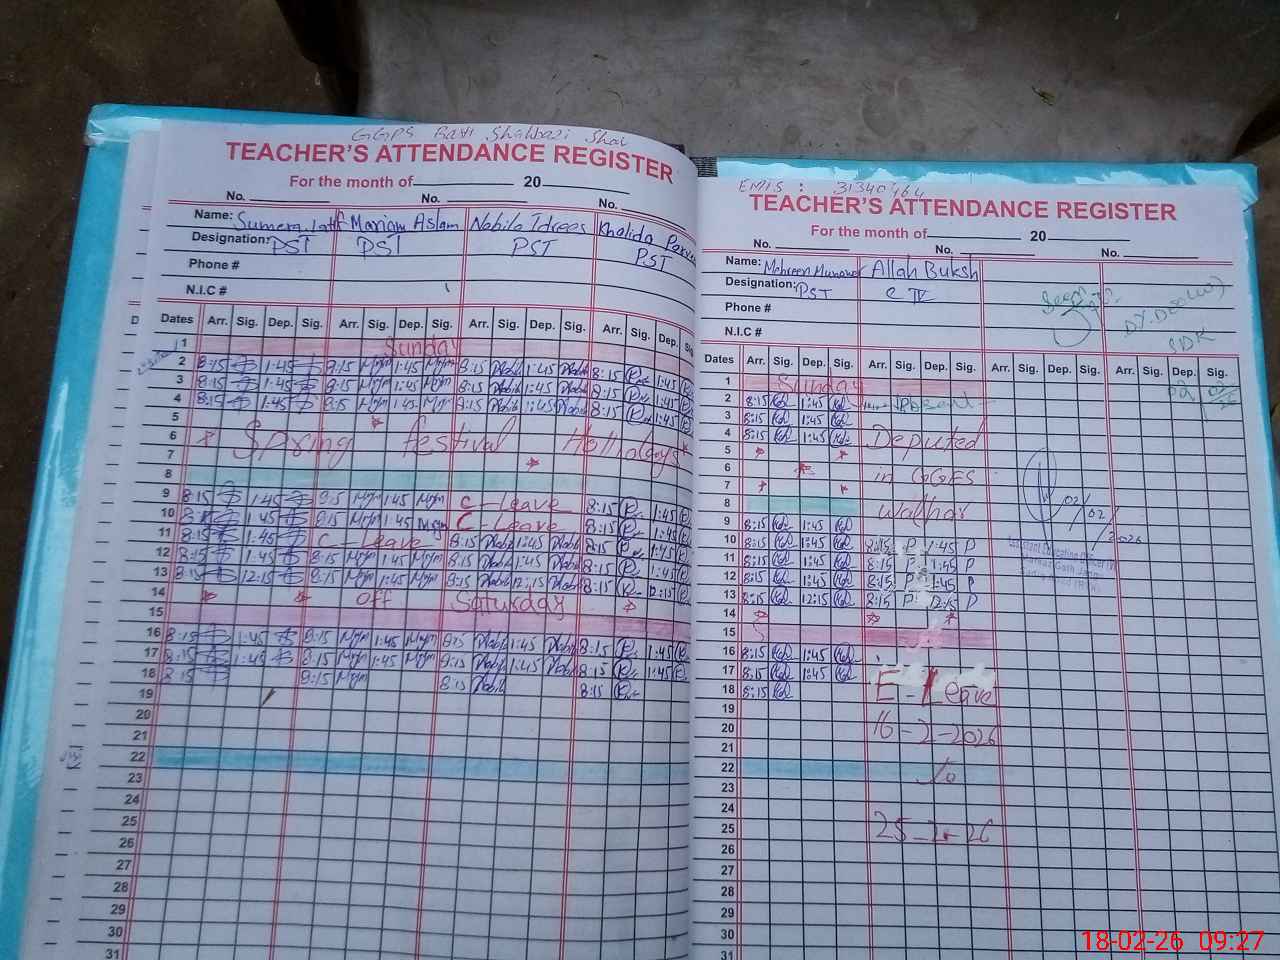 GGPS Basti Shahbazi Shai
TEACHER'S ATTENDANCE REGISTER
For the month of 20
No. No. No.
Name: Sumera Latif Mariam Aslam Nabila Idrees Khalida Parveen
Designation: PST PST PST PST
Phone #
N.I.C #
Dates Arr. Sig. Dep. Sig. Arr. Sig. Dep. Sig. Arr. Sig. Dep. Sig. Arr. Sig. Dep.
1 Sunday
2 8:15 1:45 8:15 1:45 8:15 1:45 8:15 1:45
3 8:15 1:45 8:15 1:45 8:15 1:45 8:15 1:45
4 8:15 1:45 8:15 1:45 8:15 1:45 8:15 1:45
5
6 Spring festival Hollidays
7
8
9 8:15 1:45 8:15 1:45 C-Leave 8:15 1:45
10 8:15 1:45 8:15 1:45 C-Leave 8:15 1:45
11 8:15 1:45 C-Leave 8:15 1:45 8:15 1:45
12 8:15 1:45 8:15 1:45 8:15 1:45 8:15 1:45
13 8:15 12:15 8:15 1:45 8:15 12:15 8:15 12:15
14 Off Saturday
15
16 8:15 1:45 8:15 1:45 8:15 1:45 8:15 1:45
17 8:15 1:45 8:15 1:45 8:15 1:45 8:15 1:45
18 8:15 8:15 8:15 8:15
19
20
21
22
23
24
25
26
27
28
29
30
31
EMIS : 31340464
TEACHER'S ATTENDANCE REGISTER
For the month of 20
No. No. No.
Name: Mehreen Munawar Allah Buksh
Designation: PST C IV
Phone #
N.I.C #
Seen
SDK
Dates Arr. Sig. Dep. Sig. Arr. Sig. Dep. Sig. Arr. Sig. Dep. Sig. Arr. Sig. Dep. Sig.
1 Sunday
2 8:15 1:45 Absent
3 8:15 1:45
4 8:15 1:45 Deputed
5
6 in GGES
7
8 Walhar
02/02/2026
9 8:15 1:45
10 8:15 1:45 8:15 P 1:45 P
11 8:15 1:45 8:15 P 1:45 P
12 8:15 1:45 8:15 P 1:45 P
13 8:15 12:15 8:15 P 12:15 P
14
15
16 8:15 1:45
17 8:15 1:45
18 8:15 E-Leave
19
20 16-2-2026
21
22 To
23
24
25 25-2-26
26
27
28
29
30
18-02-26 09:27